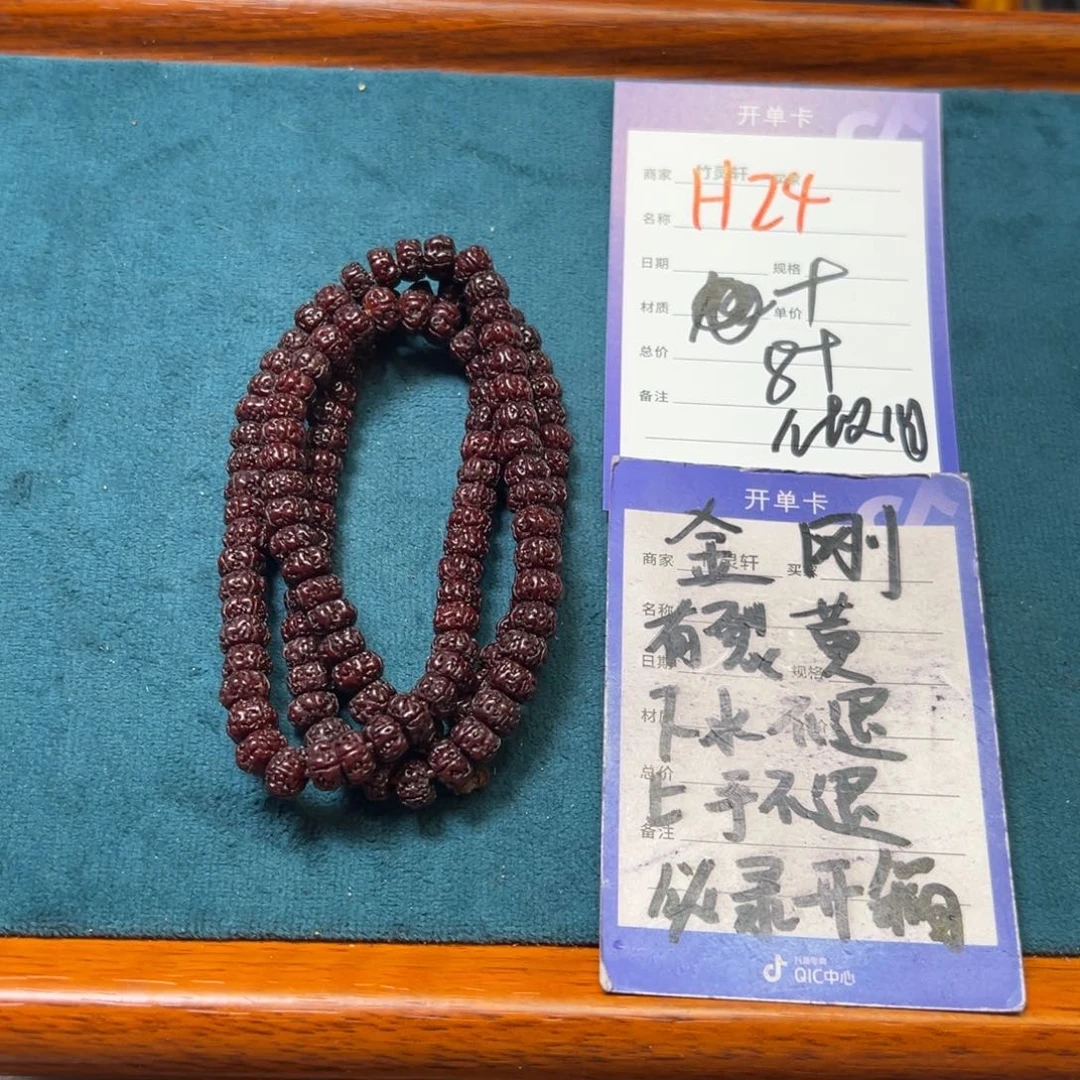 开单卡
商家 竹灵轩
H24
名称
日期 规格 十
材质 单价
总价 8十
备注
开单卡
金刚
商家 灵轩 买家
名称
有裂黄
日期 规格
下水不退
材质
总价
上手不退
备注
必录开箱
抖音电商
QIC中心